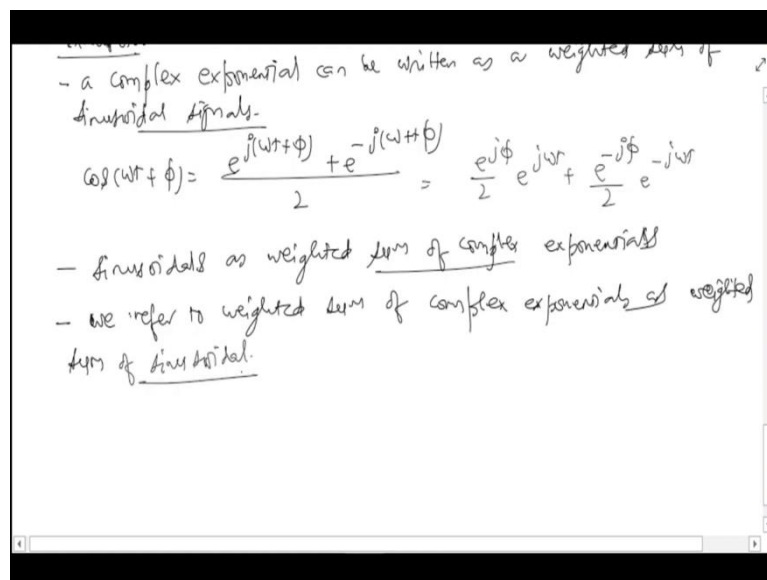 - a complex exponential can be written as a weighted sum of
sinusoidal signals.
cos(ωt + ϕ) = e^{j(ωt+ϕ)} + e^{-j(ωt+ϕ)} / 2 = e^{jϕ}/2 e^{jωt} + e^{-jϕ}/2 e^{-jωt}
- sinusoidals as weighted sum of complex exponentials
- we refer to weighted sum of complex exponentials as weighted
sum of sinusoidal.